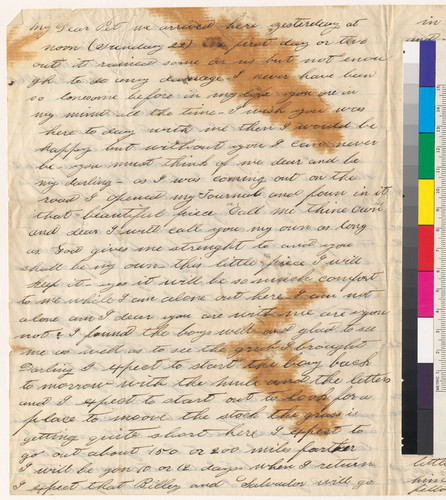 My Dear Pet we arrived here yesterday at
noon (Sunday 22) the first day or two
out it rained some on us but not enou
gh to do any damage I never have been
so lonesome before in my life you are in
my mind all the time - I wish you was
here to day with me then I would be
happy but without you I can never
be - you must think of me dear and be
my darling - as I was coming out on the
road I opened my Journal and foun in it
that beautiful piece "Call me Thine Own"
and dear I will call you my own as long
as God gives me strenght to and you
shall be my own this little piece I will
keep it - yes it will be so much comfort
to me while I am alone out here I am not
alone am I dear you are with me are you
not? I found the boys well and glad to see
me as well as to see the grub I brought
Darling I expect to start the boy back
to morrow with the mule and the letters
and I expect to start out to look for a
place to moove the stock the grass is
getting quite short here I expect to
go out about 150 or 200 miles farther
I will be gon 10 or 12 days when I return
I expect that Billey and Salvador will go
in
little
him
fello